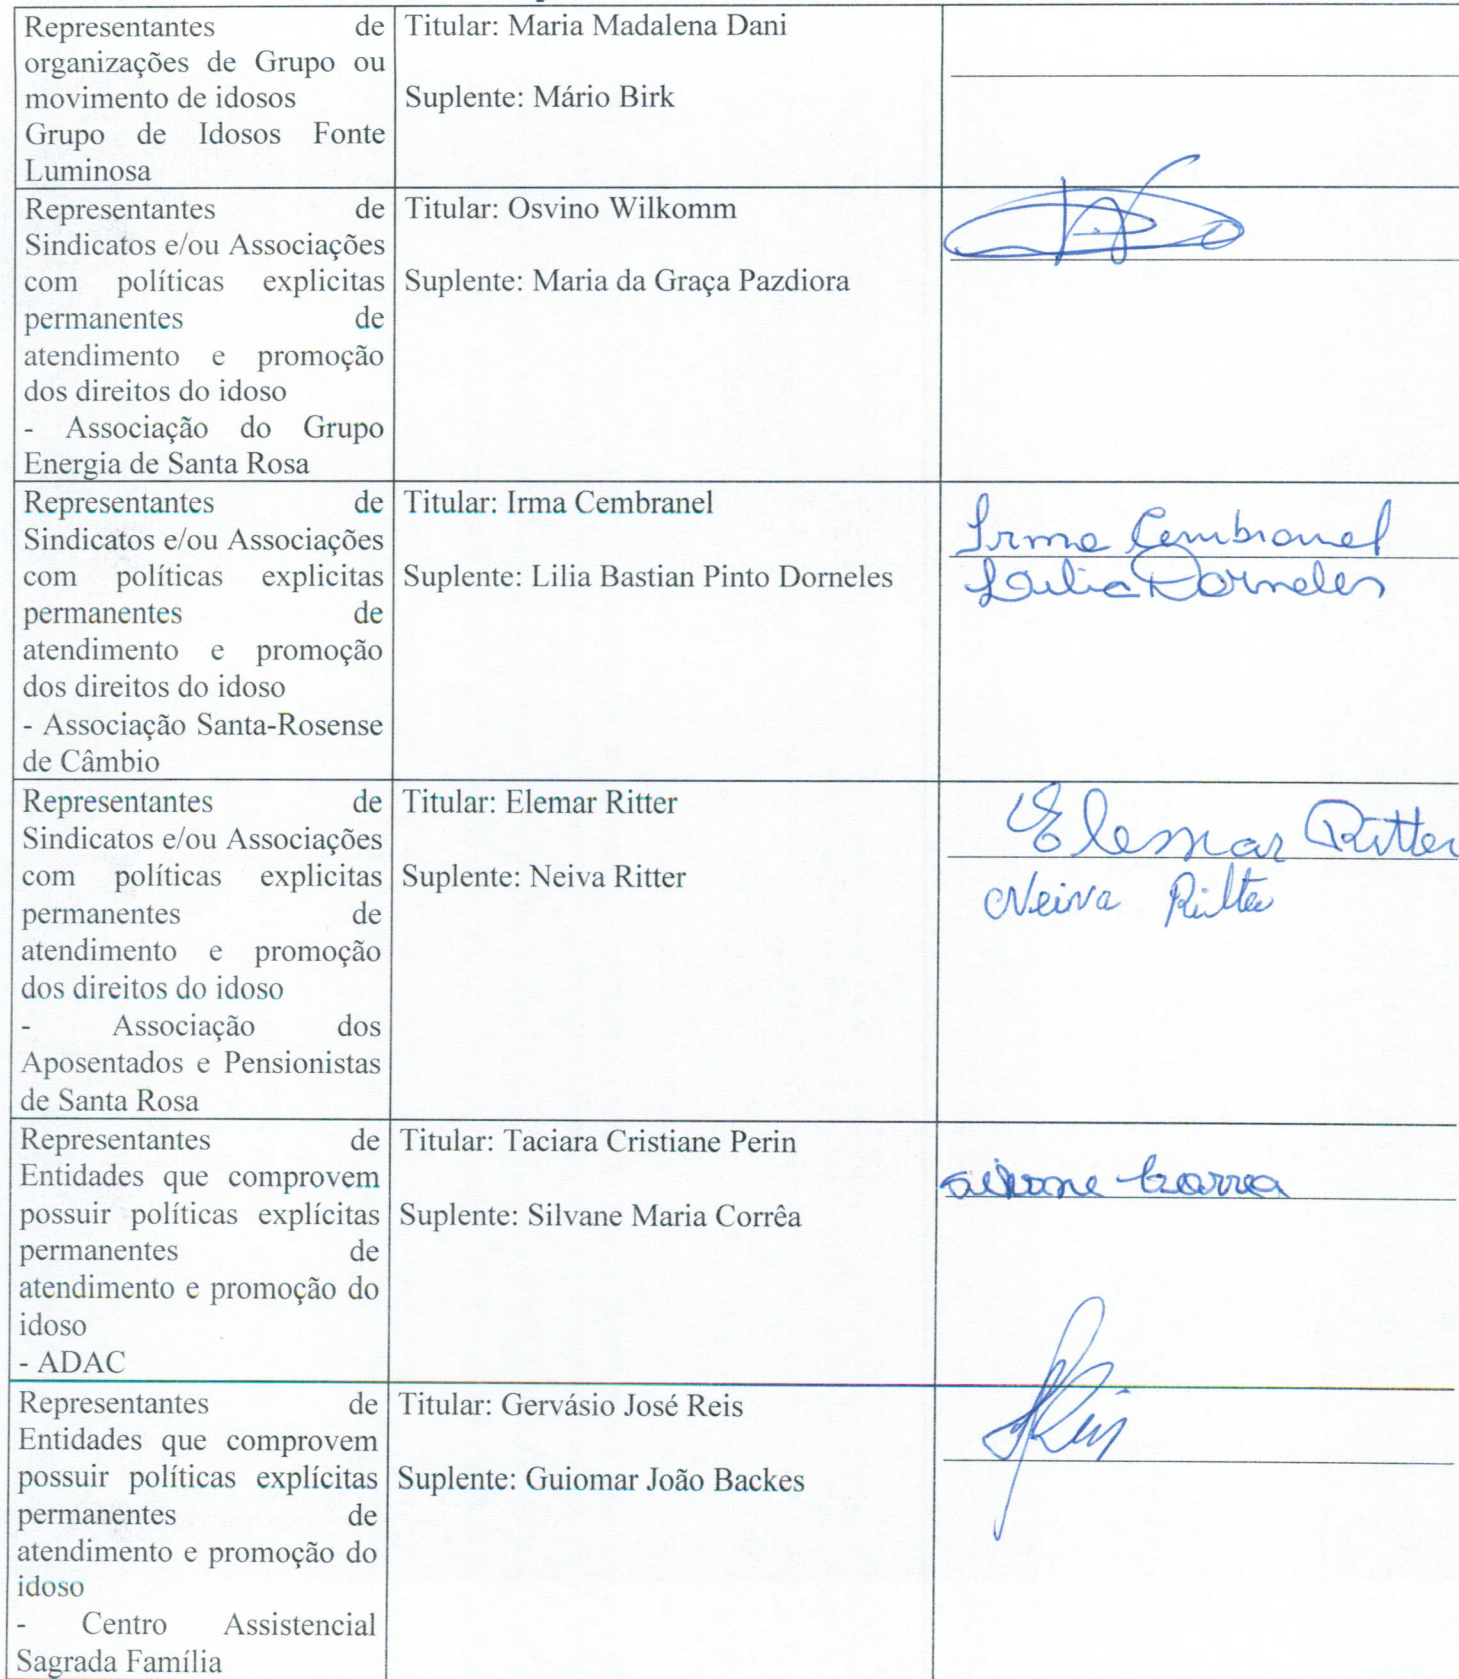 Representantes de
organizações de Grupo ou
movimento de idosos
Grupo de Idosos Fonte
Luminosa
Titular: Maria Madalena Dani
Suplente: Mário Birk
Representantes de
Sindicatos e/ou Associações
com políticas explicitas
permanentes de
atendimento e promoção
dos direitos do idoso
- Associação do Grupo
Energia de Santa Rosa
Titular: Osvino Wilkomm
Suplente: Maria da Graça Pazdiora
Representantes de
Sindicatos e/ou Associações
com políticas explicitas
permanentes de
atendimento e promoção
dos direitos do idoso
- Associação Santa-Rosense
de Câmbio
Titular: Irma Cembranel
Suplente: Lilia Bastian Pinto Dorneles
Irma Cembranel
Lilia Dorneles
Representantes de
Sindicatos e/ou Associações
com políticas explicitas
permanentes de
atendimento e promoção
dos direitos do idoso
- Associação dos
Aposentados e Pensionistas
de Santa Rosa
Titular: Elemar Ritter
Suplente: Neiva Ritter
Elemar Ritter
Neiva Ritter
Representantes de
Entidades que comprovem
possuir políticas explícitas
permanentes de
atendimento e promoção do
idoso
- ADAC
Titular: Taciara Cristiane Perin
Suplente: Silvane Maria Corrêa
Silvane Correa
Representantes de
Entidades que comprovem
possuir políticas explícitas
permanentes de
atendimento e promoção do
idoso
- Centro Assistencial
Sagrada Família
Titular: Gervásio José Reis
Suplente: Guiomar João Backes